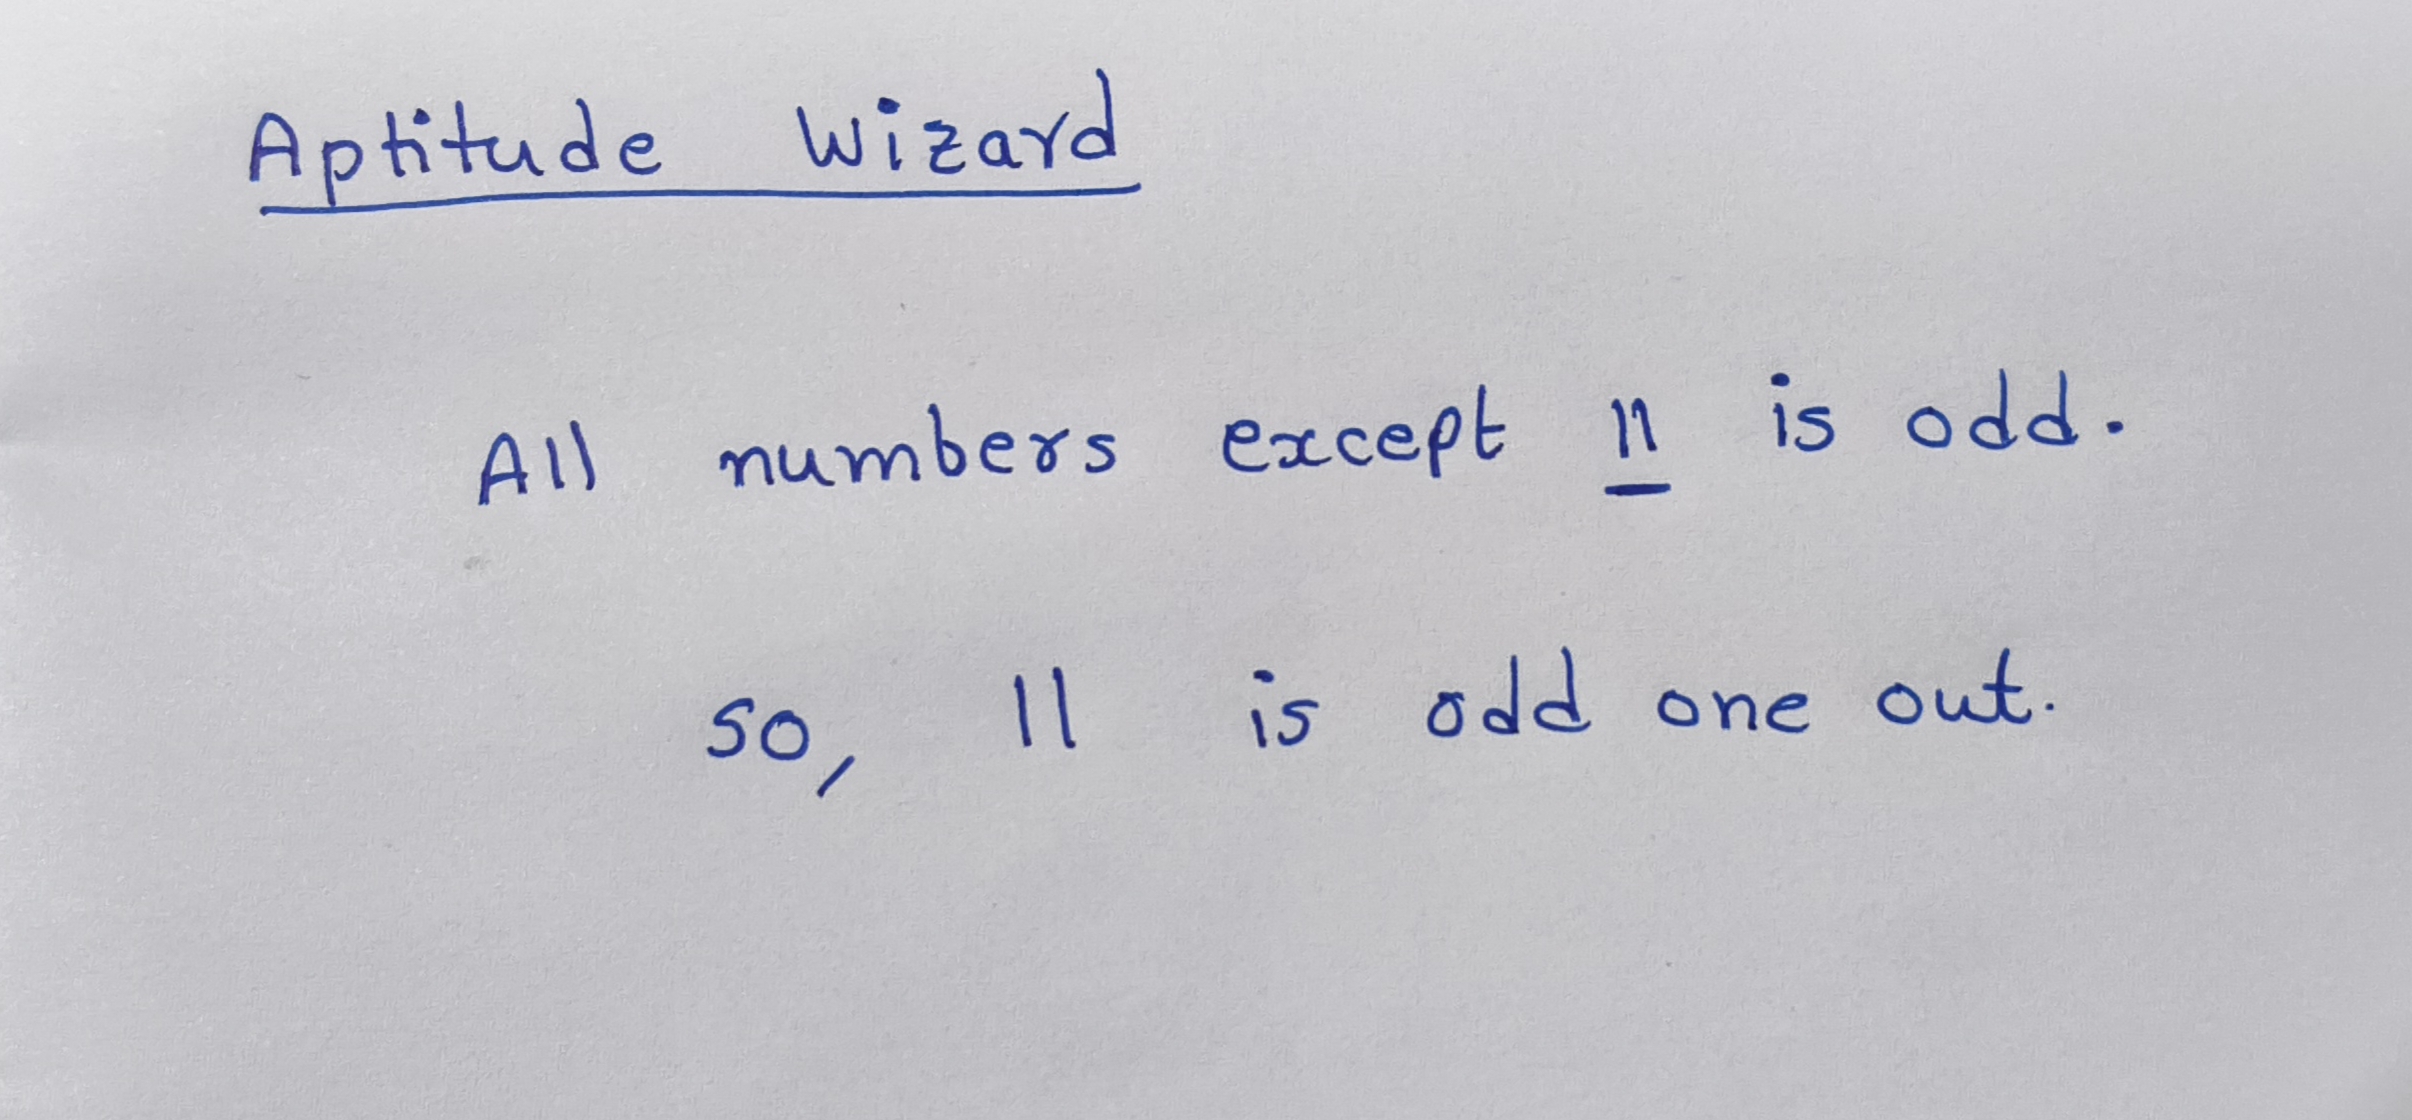 Aptitude Wizard
All numbers except 11 is odd.
so, 11 is odd one out.